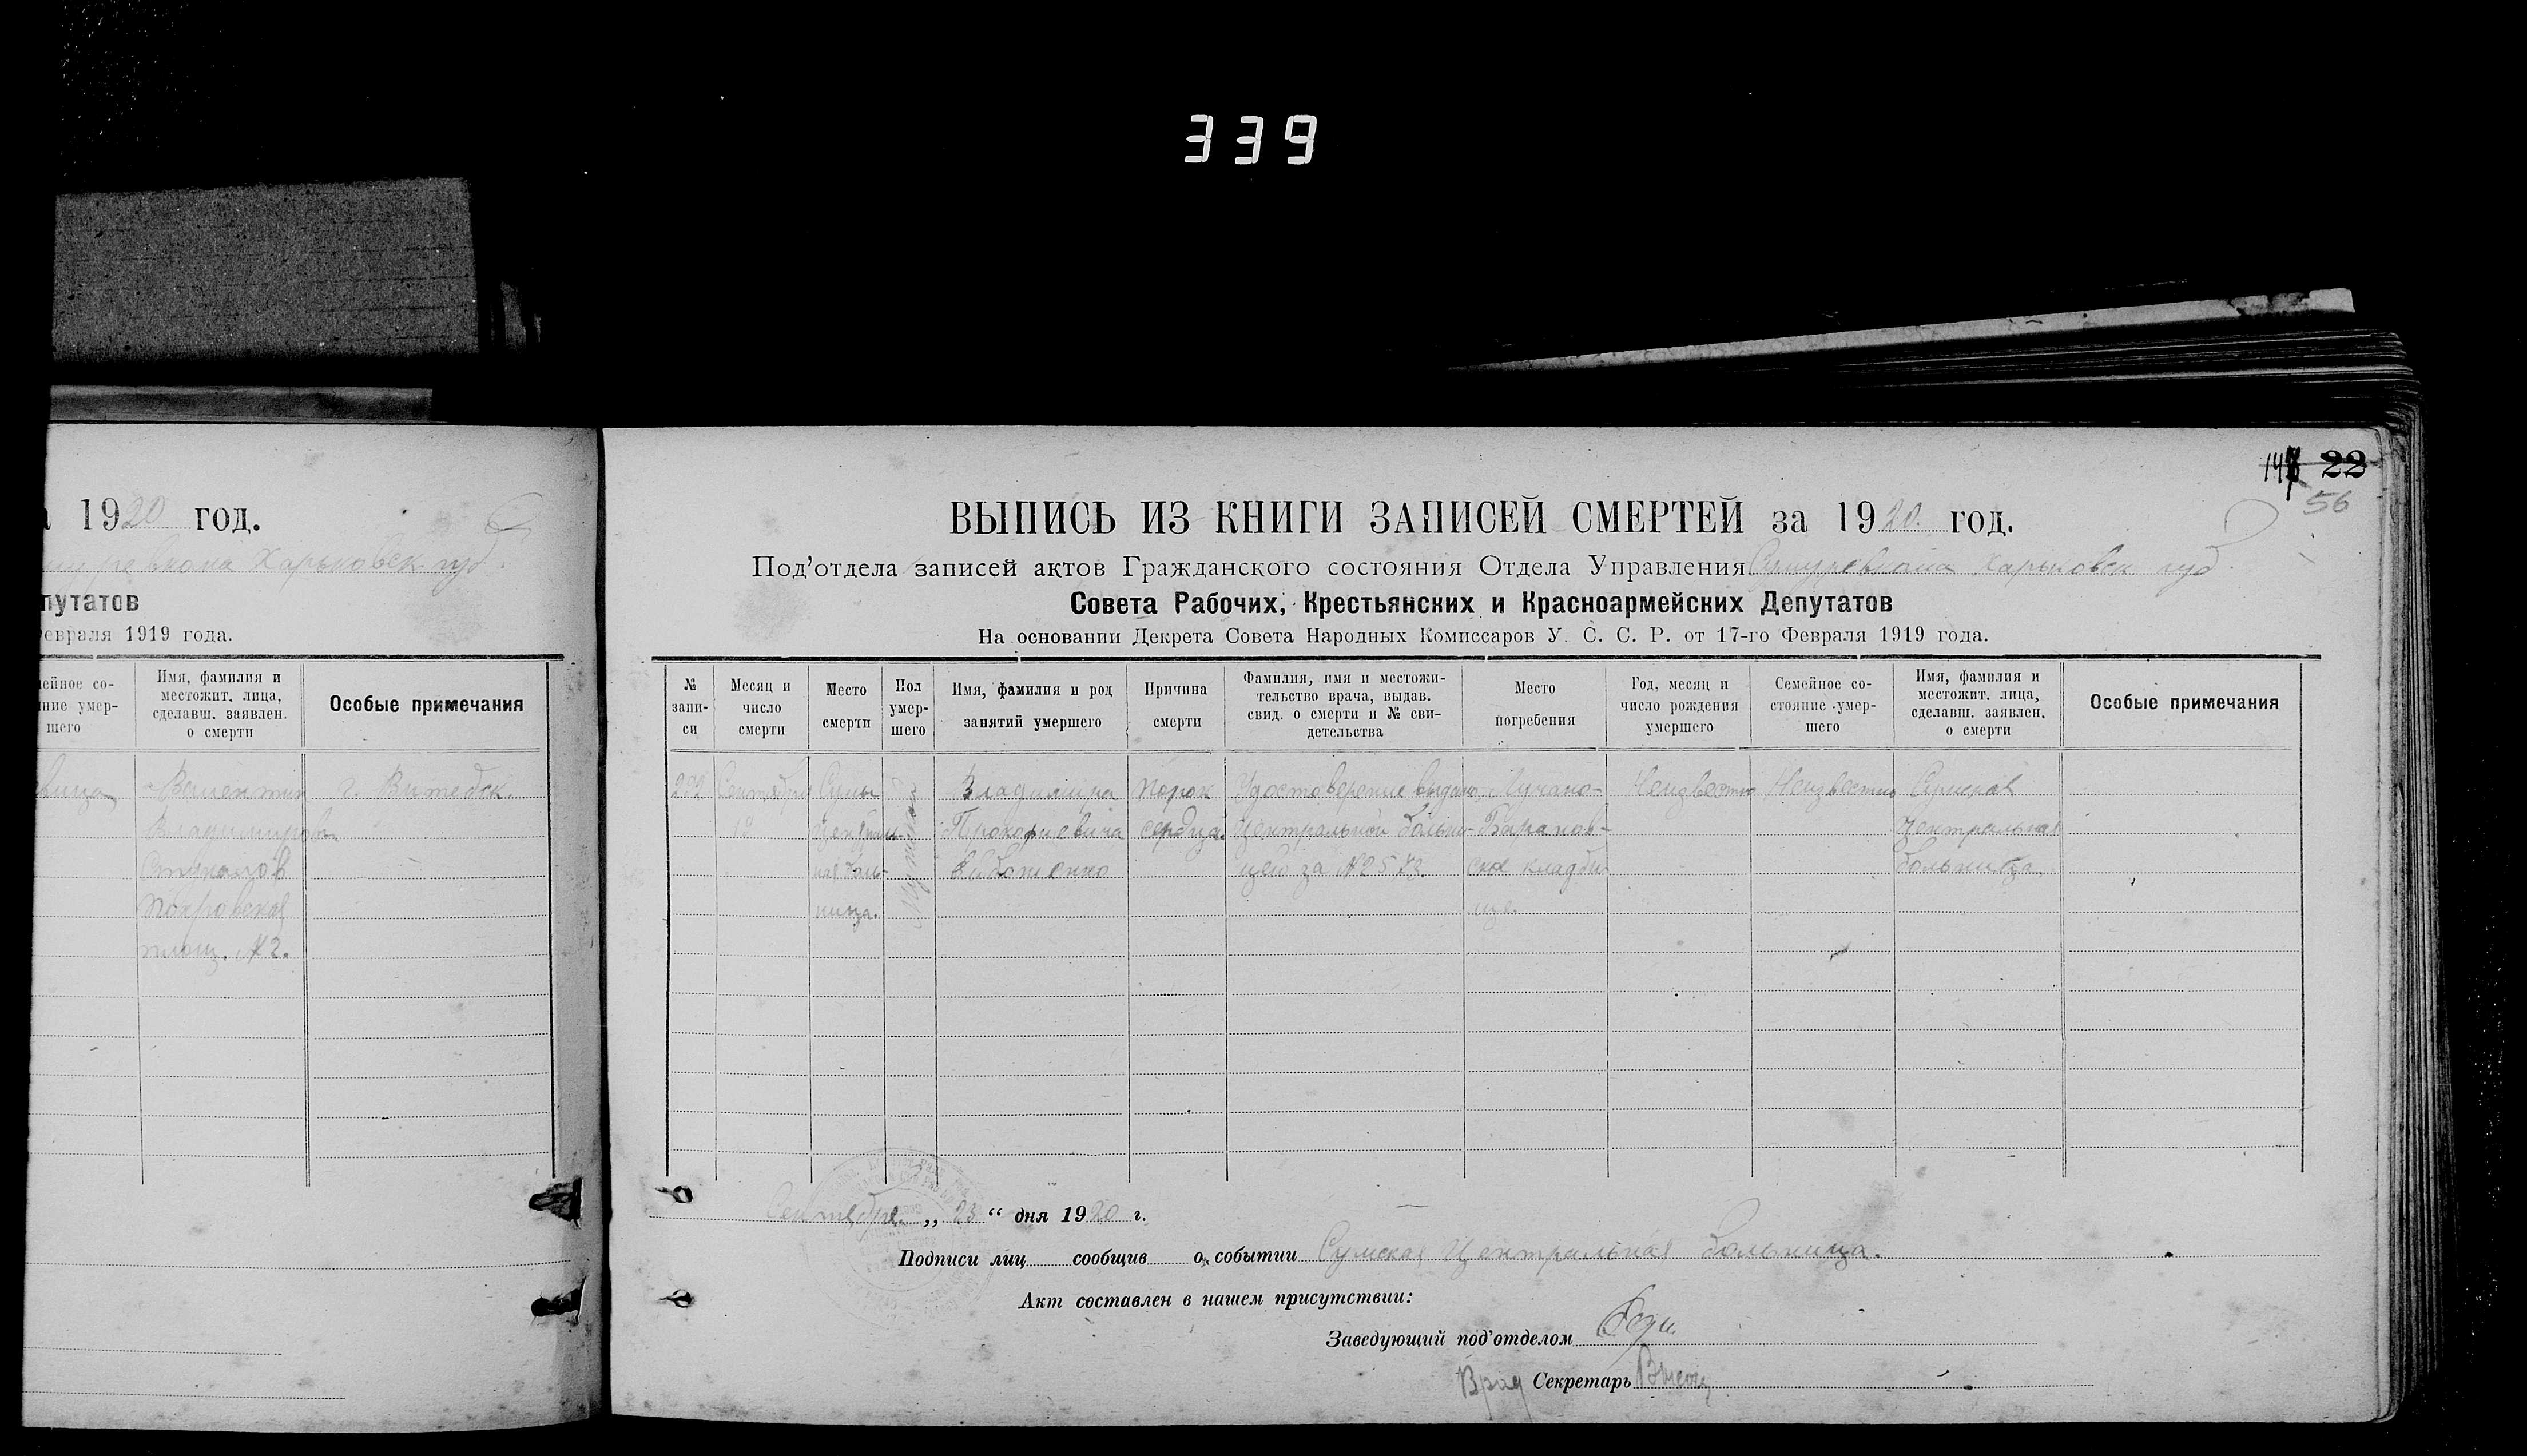 339
1920 год.
Харьковск губ.
путатов
евраля 1919 года.
ейное со-
ние умер-
шего
Имя, фамилия и
местожит. лица,
сделавш. заявлен.
о смерти
Особые примечания
Валентин
Владимиров
Покровская
площ. №2.
г. Витебск.
147 22
56
ВЫПИСЬ ИЗ КНИГИ ЗАПИСЕЙ СМЕРТЕЙ за 1920 год.
Под'отдела записей актов Гражданского состояния Отдела Управления Харьковск губ.
Совета Рабочих, Крестьянских и Красноармейских Депутатов
На основании Декрета Совета Народных Комиссаров У. С. С. Р. от 17-го Февраля 1919 года.
№
запи-
си
Месяц и
число
смерти
Место
смерти
Пол
умер-
шего
Имя, фамилия и род
занятий умершего
Причина
смерти
Фамилия, имя и местожи-
тельство врача, выдав.
свид. о смерти и № сви-
детельства
Место
погребения
Год, месяц и
число рождения
умершего
Семейное со-
стояние умер-
шего
Имя, фамилия и
местожит. лица,
сделавш. заявлен.
о смерти
Особые примечания
Сентября
19
Сумы
Централь-
ная боль-
ница.
Мужской
Владимира
Прокофиевича
Порок
сердца.
Удостоверение выдано
Центральной больни-
цей за №2573.
Лучано-
Баранов-
ское кладби-
ще.
Неизвестно
Неизвестно
Сумская
Центральная
больница.
Сентября „ 23 “ дня 1920 г.
Подписи лиц сообщив о событии Сумская Центральная больница.
Акт составлен в нашем присутствии:
Заведующий под'отделом
Врид Секретарь